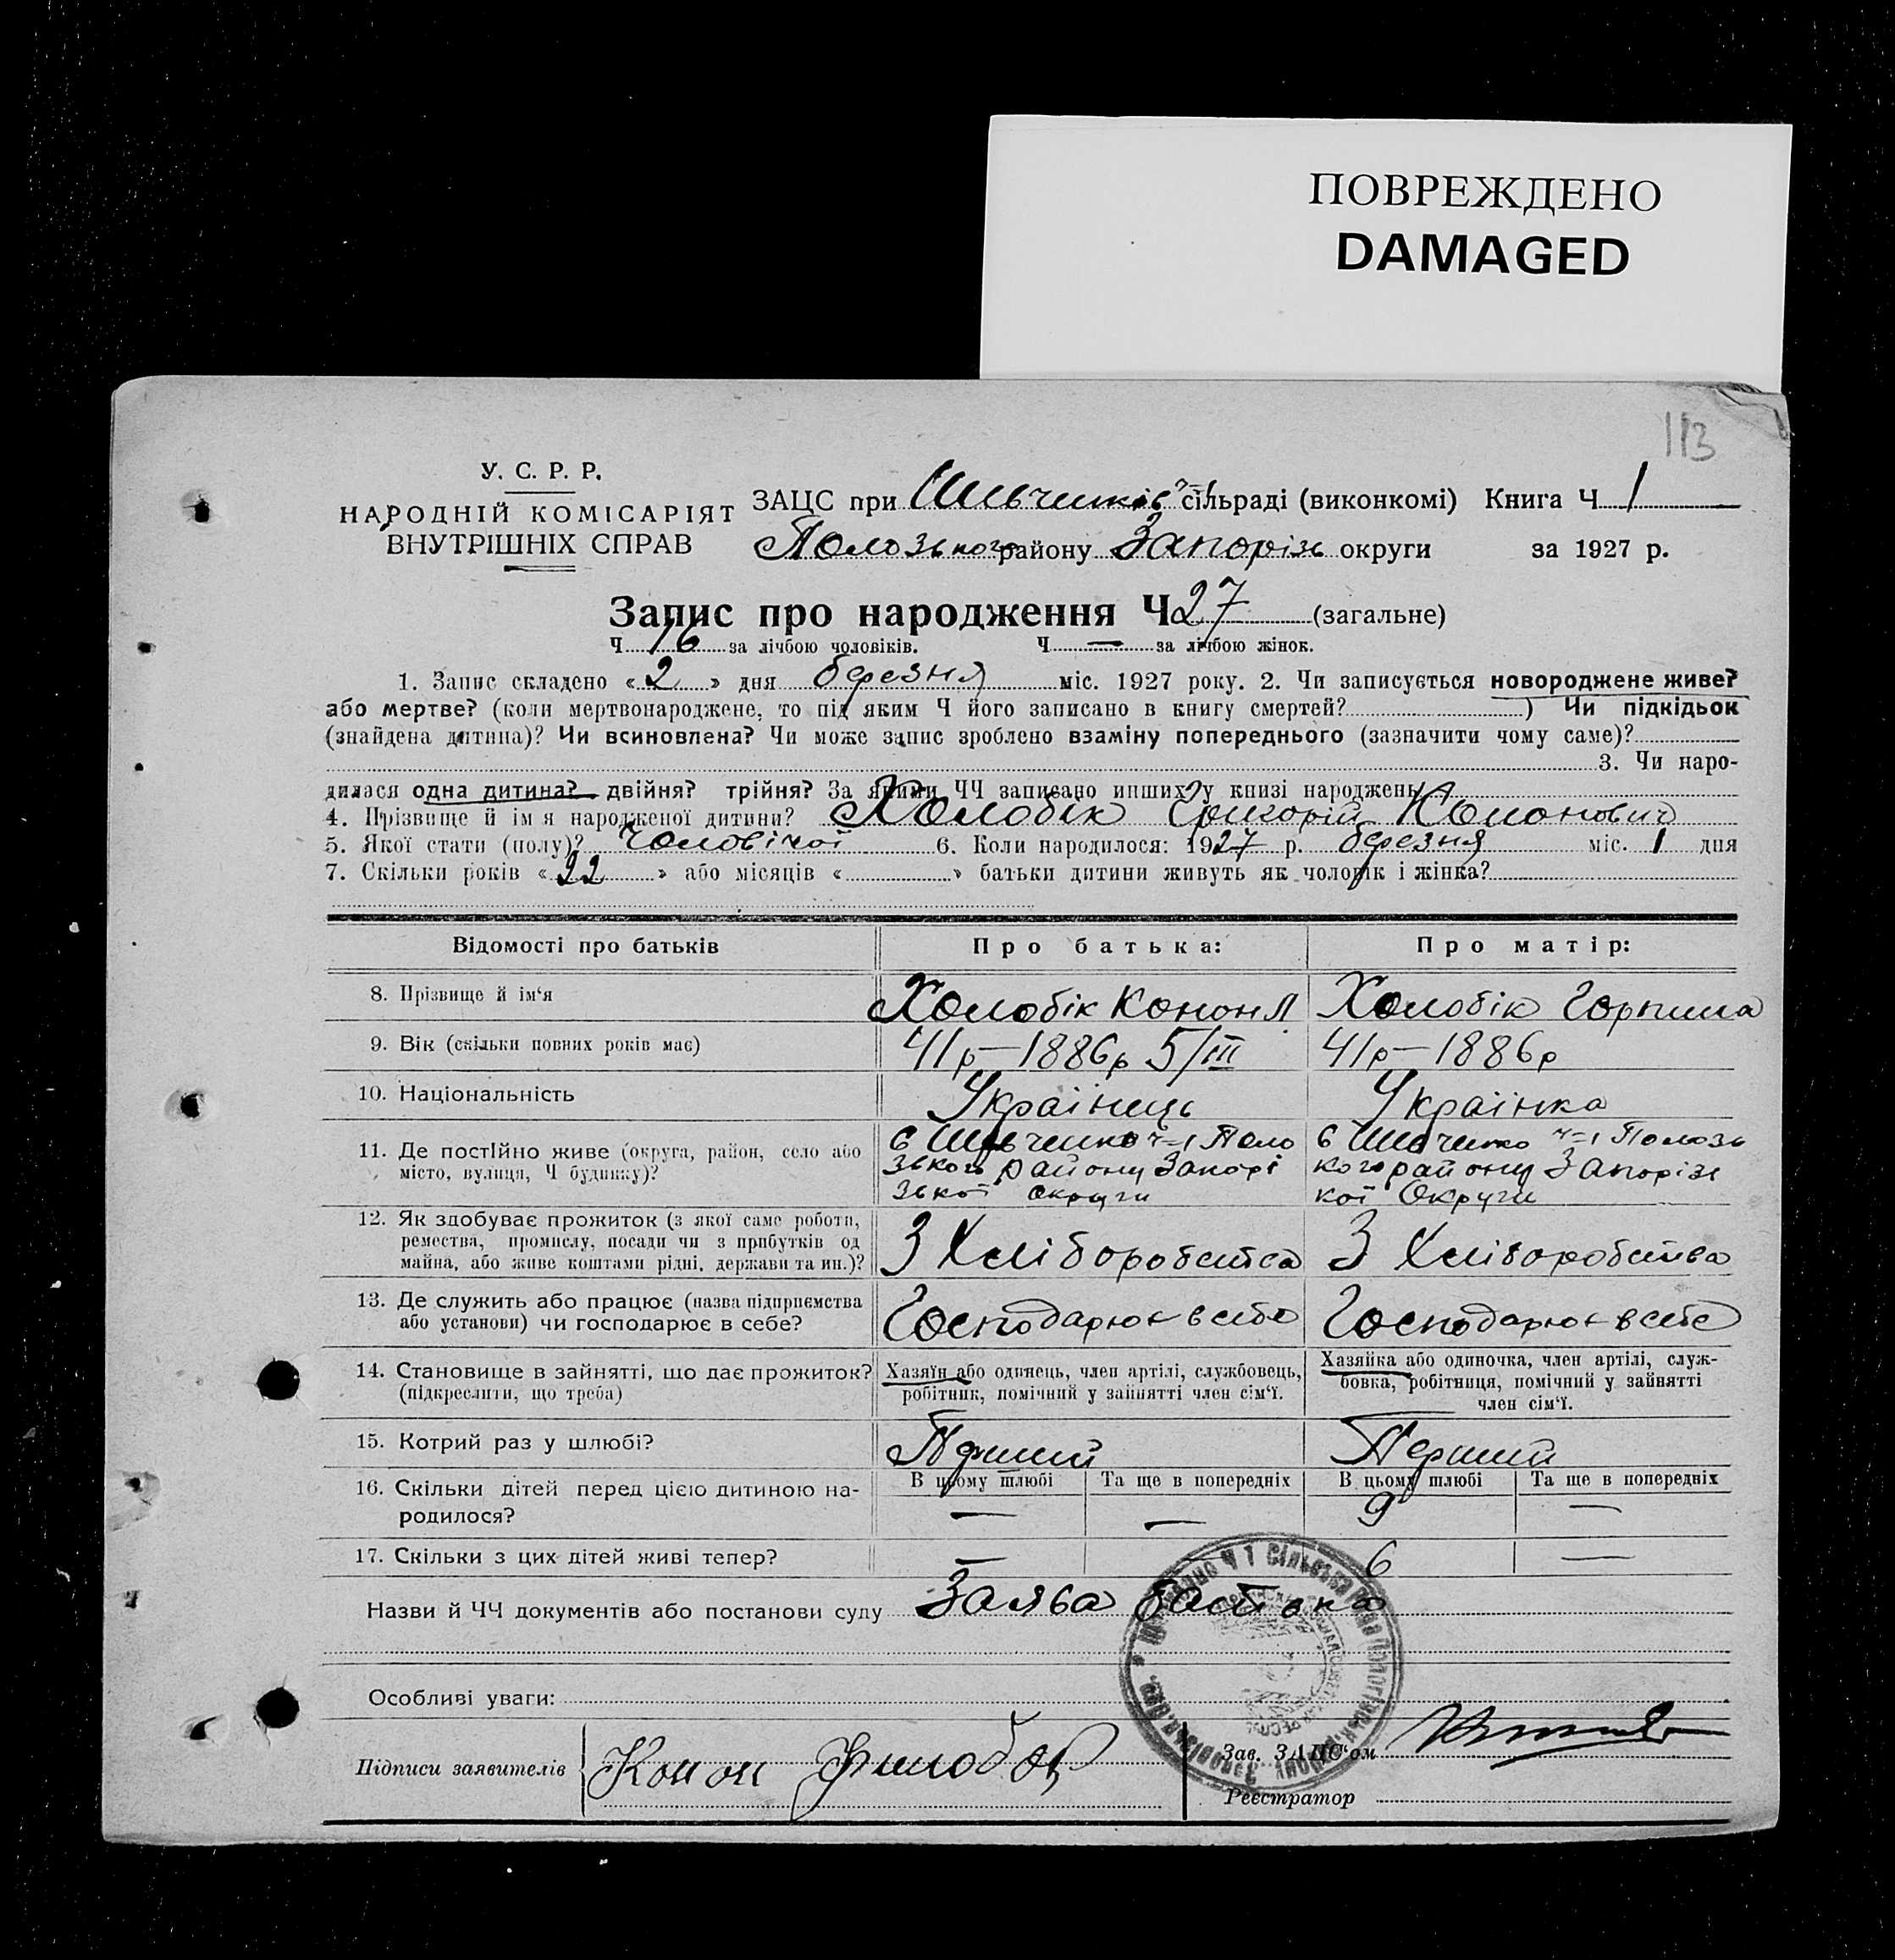 ПОВРЕЖДЕНО
DAMAGED
113
У. С. Р. Р.
НАРОДНІЙ КОМІСАРІЯТ
ВНУТРІШНІХ СПРАВ
ЗАЦС при сільраді (виконкомі) Книга Ч. 1
Полозького району Запорізь округи за 1927 р.
Запис про народження Ч 27 (загальне)
Ч 16 за лічбою чоловіків. Ч — за лічбою жінок.
1. Запис складено « 2 » дня березня міс. 1927 року. 2. Чи записується новороджене живе?
або мертве? (коли мертвонароджене, то під яким Ч його записано в книгу смертей? ) Чи підкідьок
(знайдена дитина)? Чи всиновлена? Чи може запис зроблено взаміну попереднього (зазначити чому саме)?
3. Чи наро-
дилася одна дитина? двійня? трійня? За якими ЧЧ записано инших у книзі народжень
4. Прізвище й ім'я народженої дитини? Холобік Григорій Кононович
5. Якої стати (полу)? Чоловічої 6. Коли народилося: 1927 р. березня міс. 1 дня
7. Скільки років « 22 » або місяців « » батьки дитини живуть як чоловік і жінка?
Відомості про батьків Про батька: Про матір:
8. Прізвище й ім'я Холобік Конон Л Холобік Горпина
9. Вік (скільки повних років має) 41р—1886р 5/III 41р—1886р
10. Національність Українець Українка
11. Де постійно живе (округа, район, село або
місто, вулиця, Ч будинку)?
Ч=1 Поло
зького району Запорі
зької округи
Ч=1 Полозь
кого району Запорізь
кої Округи
12. Як здобуває прожиток (з якої саме роботи,
ремества, промислу, посади чи з прибутків од
майна, або живе коштами рідні, держави та ин.)?
З Хліборобства З Хліборобства
13. Де служить або працює (назва підприємства
або установи) чи господарює в себе?
Господарює в себе Господарює в себе
14. Становище в зайнятті, що дає прожиток?
(підкреслити, що треба)
Хазяїн або одинець, член артілі, службовець,
робітник, помічний у зайнятті член сім'ї.
Хазяйка або одиночка, член артілі, служ-
бовка, робітниця, помічний у зайнятті
член сім'ї.
15. Котрий раз у шлюбі? Перший Перший
16. Скільки дітей перед цією дитиною на-
родилося?
В цьому шлюбі Та ще в попередніх В цьому шлюбі Та ще в попередніх
— — 9 —
17. Скільки з цих дітей живі тепер? — 6 —
Назви й ЧЧ документів або постанови суду Заява батька
Особливі уваги:
Підписи заявителів Конон
Зав. ЗАЦС'ом
Реєстратор